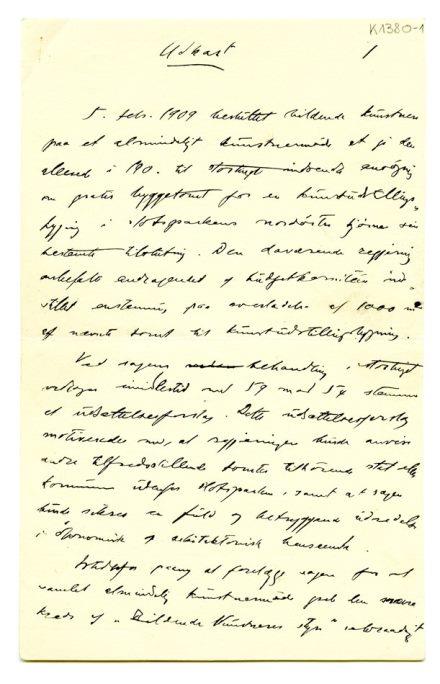 K1380-1
Udkast 1
5. feb. 1909 besluttet bildende kunstnere
paa et almindeligt kunstnermøde at
i 1910. til indsende
om gratis byggetomt for en kunstudstillings-
bygning i slotsparkens nordøstre hjørne
Den daværende regjering
anbefalte andragendet og budgetkomiteen ind-
stillet enstemmig paa avstaaelse af 1000 m²
af nævnte tomt til kunstudstillingsbygning.
Ved sagens behandling i stortinget
vedtoges imidlertid med 59 mod 54 stemmer
et udsættelsesforslag. Dette udsættelsesforslag
motiveredes med, at regjeringen kunde anvise
andre tilfredsstillende tomter tilhørende stat eller
kommune udenfor slotsparken, samt at sagen
kunde sikres en fuld og betryggende udredelse
i økonomisk og arkitektonisk henseende.
at forelægge sagen for et
samlet almindelig kunstnermøde
af "Bildende Kunstneres Styre"